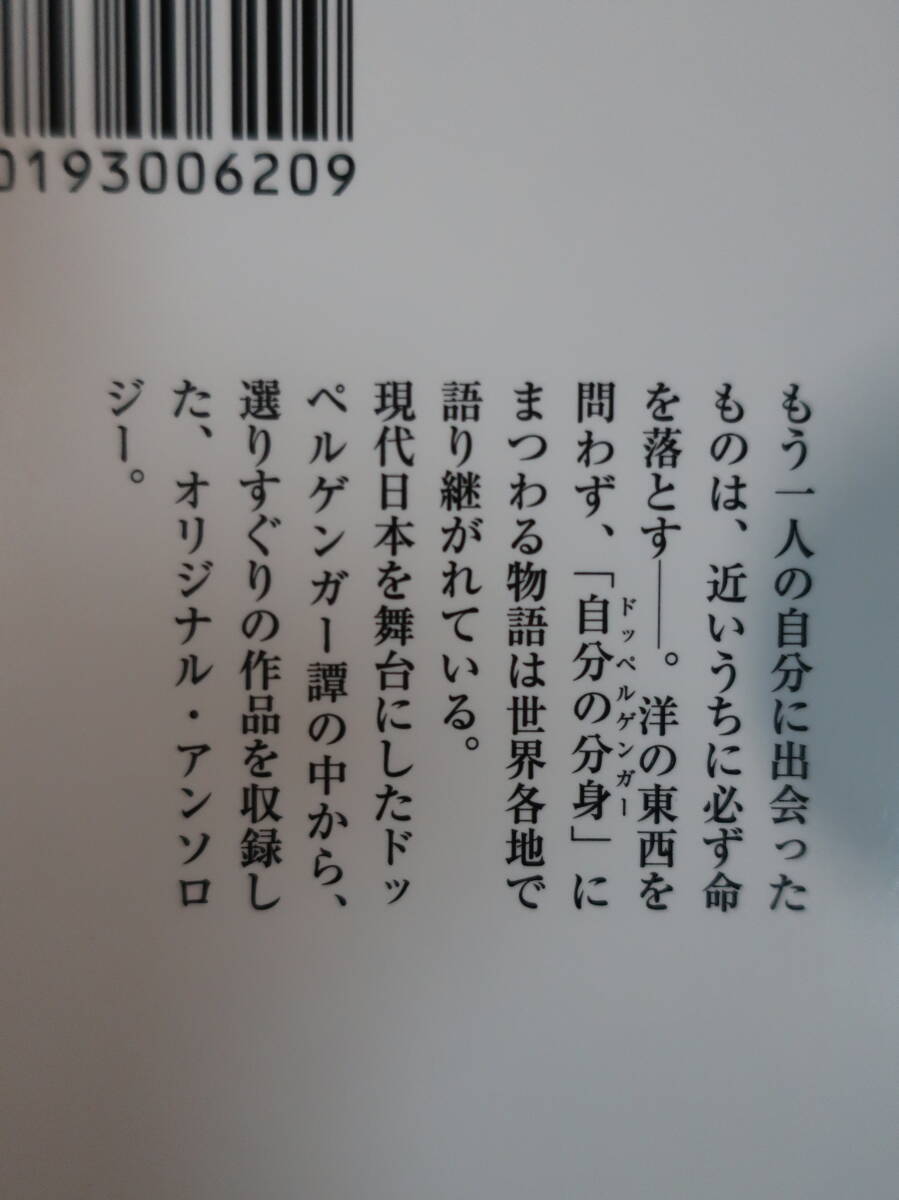 0193006209
もう一人の自分に出会った
ものは、近いうちに必ず命
を落とす――。洋の東西を
問わず、「自分の分身」に
ドッペルゲンガー
まつわる物語は世界各地で
語り継がれている。
現代日本を舞台にしたドッ
ペルゲンガー譚の中から、
選りすぐりの作品を収録し
た、オリジナル・アンソロ
ジー。